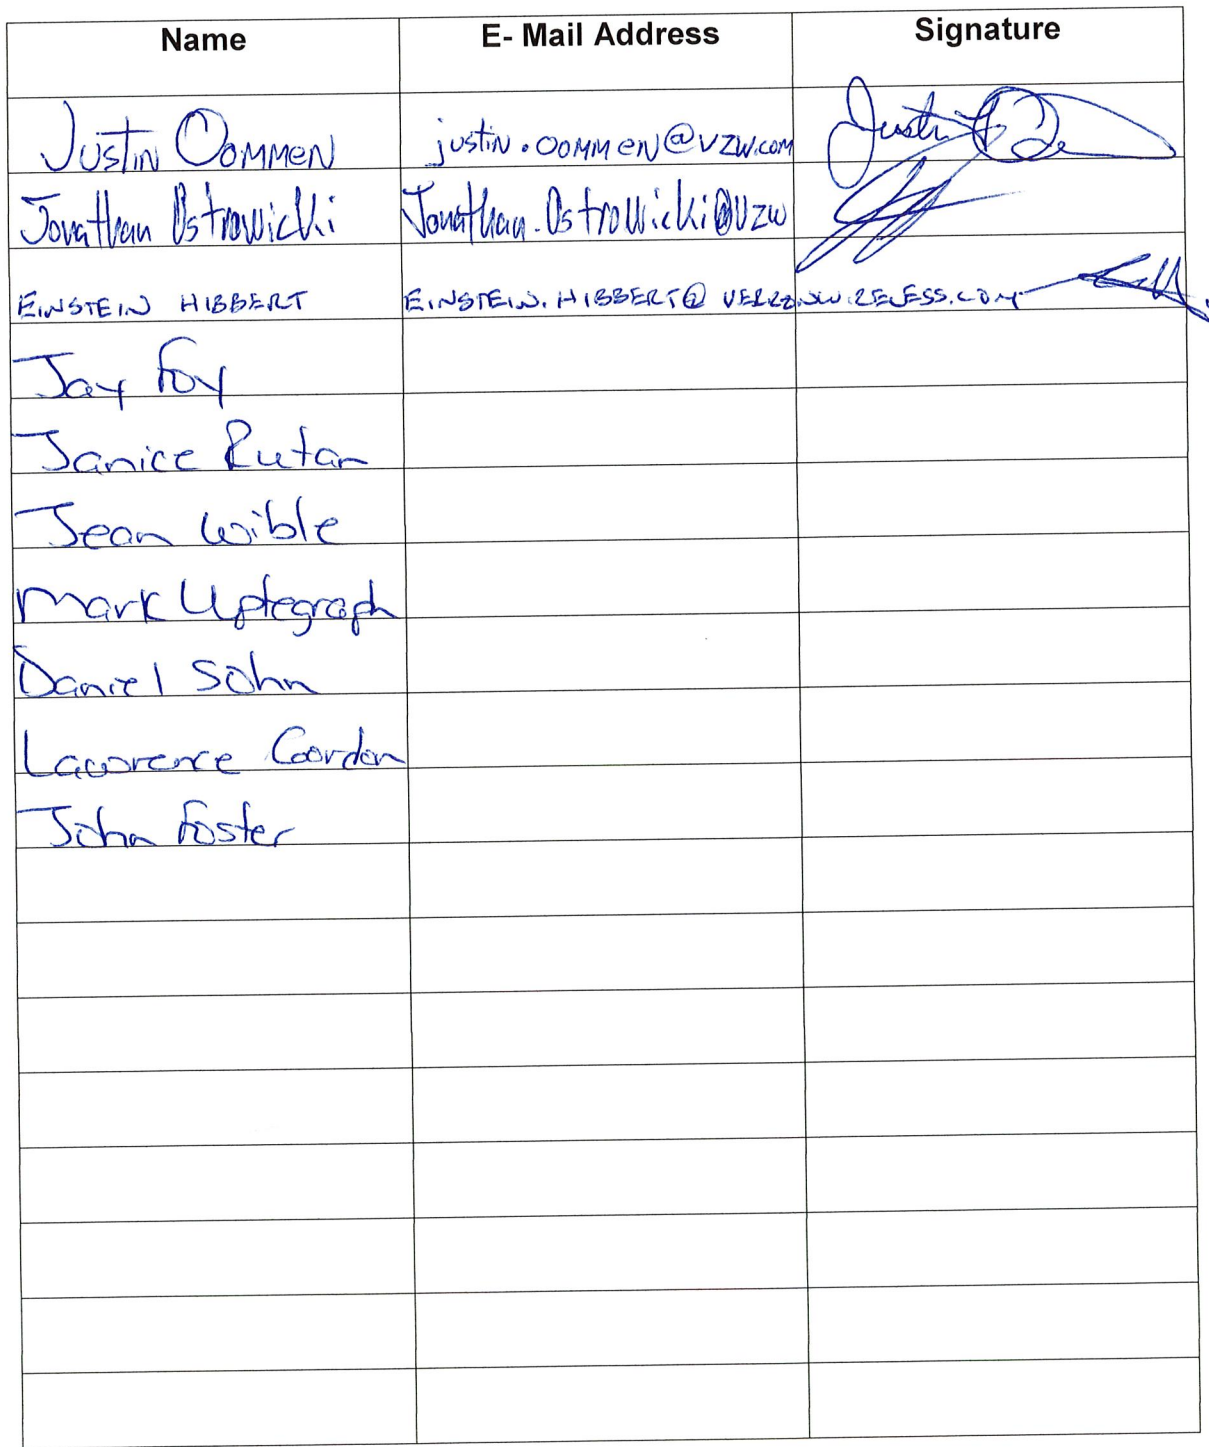 Name E- Mail Address Signature
Justin Oommen justin.oommen@vzw.com
Jonathan Ostrowicki Jonathan.Ostrowicki@vzw
EINSTEIN HIBBERT EINSTEIN.HIBBERT@
Jay Foy
Janice Rutan
Jean Wible
Mark Uptegraph
Daniel Sohn
Lawrence Gordon
John Foster